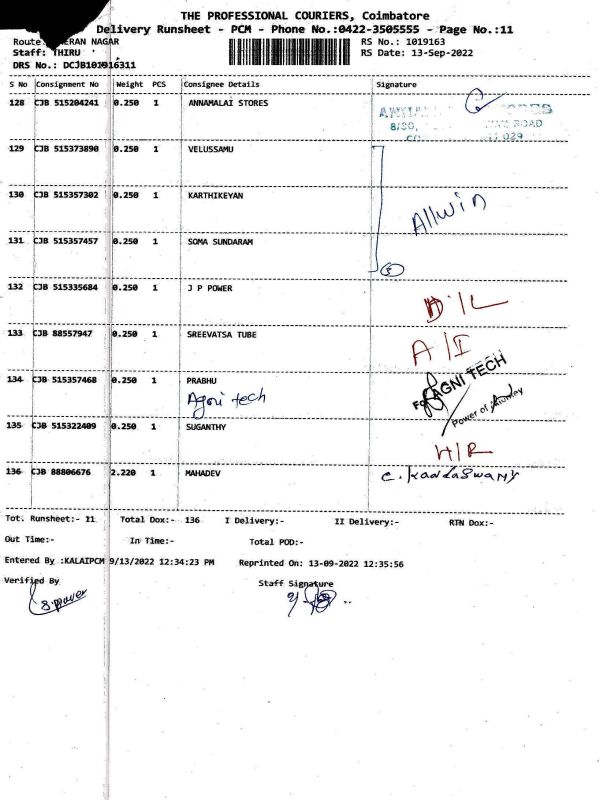 THE PROFESSIONAL COURIERS, Coimbatore
Delivery Runsheet - PCM - Phone No.:0422-3505555 - Page No.:11
Route: ERAN NAGAR RS No.: 1019163
Staff: THIRU RS Date: 13-Sep-2022
DRS No.: DCJB101916311
S No Consignment No Weight PCS Consignee Details Signature
128 CJB 515204241 0.250 1 ANNAMALAI STORES
8/30, ROAD
129 CJB 515373890 0.250 1 VELUSSAMU
130 CJB 515357302 0.250 1 KARTHIKEYAN
Allwin
131 CJB 515357457 0.250 1 SOMA SUNDARAM
132 CJB 515335684 0.250 1 J P POWER
D/L
133 CJB 88557947 0.250 1 SREEVATSA TUBE
A/I
134 CJB 515357468 0.250 1 PRABHU
Agni tech
For AGNI TECH
Power of Attorney
135 CJB 515322409 0.250 1 SUGANTHY
H/R
136 CJB 88806676 2.220 1 MAHADEV
C. Kandaswamy
Tot. Runsheet:- 11 Total Dox:- 136 I Delivery:- II Delivery:- RTN Dox:-
Out Time:- In Time:- Total POD:-
Entered By :KALAIPCM 9/13/2022 12:34:23 PM Reprinted On: 13-09-2022 12:35:56
Verified By Staff Signature